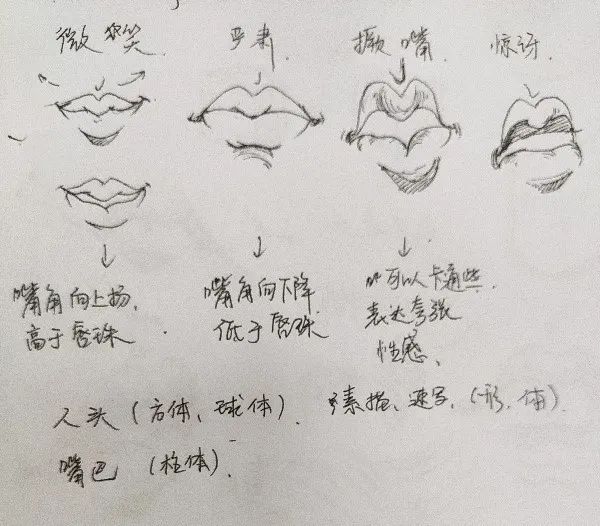 微笑
严肃
撅嘴
惊讶
嘴角向上扬,
高于唇珠
嘴角向下降
低于唇珠
可以卡通些
表达夸张
性感、
人头(方体、球体).
素描、速写,(形、体).
嘴巴(柱体).